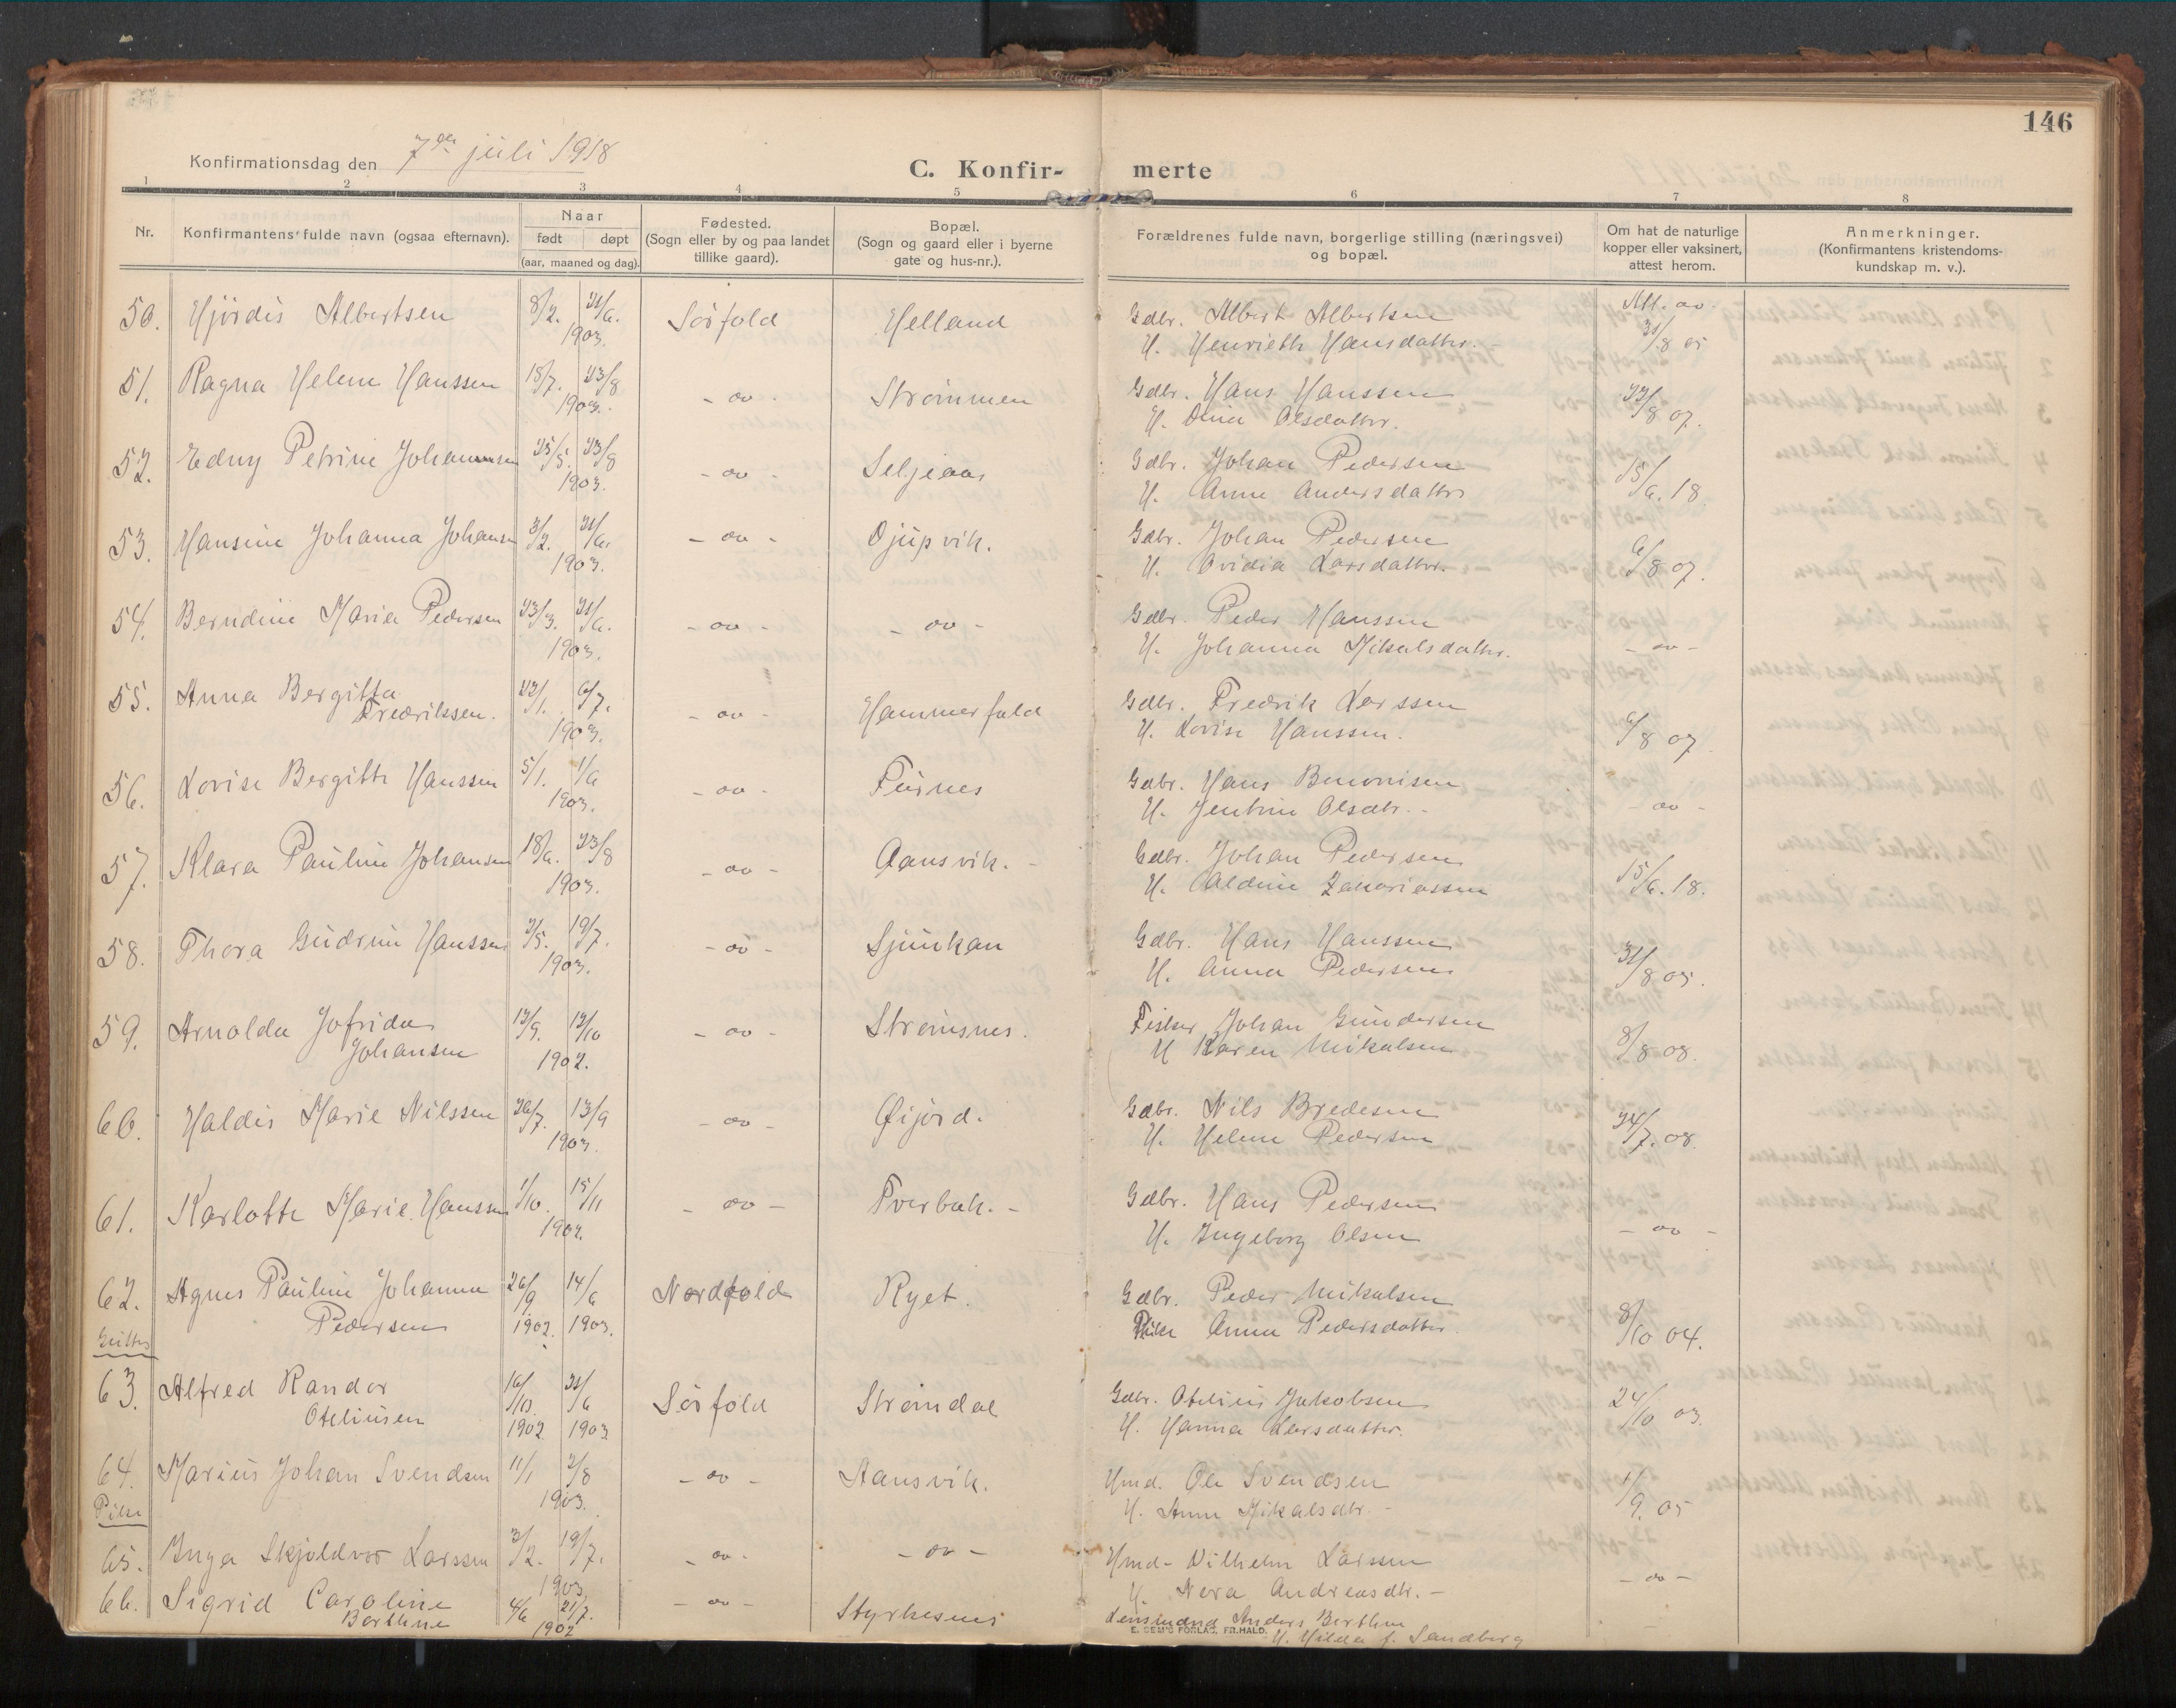 146
Konfirmationsdag den 7de juli 1918
C. Konfir- merte
1 2 3 4 5 6 7 8
Nr.
Konfirmantens fulde navn (ogsaa efternavn).
Naar
født døpt
(aar, maaned og dag).
Fødested.
(Sogn eller by og paa landet
tillike gaard).
Bopæl.
(Sogn og gaard eller i byerne
gate og hus-nr.).
Forældrenes fulde navn, borgerlige stilling (næringsvei)
og bopæl.
Om hat de naturlige
kopper eller vaksinert,
attest herom.
Anmerkninger.
(Konfirmantens kristendoms-
kundskap m. v.).
50. Hjördis Albertsen 8/2. 21/6. 1903. Sörfold Helland Gdbr. Albert Albertsen Att. av.
H. Henriette Hansdatter. 31/8 05
51. Ragna Helene Hanssen 18/7. 23/8 1903. - do - Strømmen Gdbr. Hans Hanssen 22/8 07.
H. Olsdatter.
52. Edny Petrine Johannsen 25/5. 23/8 1903. - do - Seljeaas Gdbr. Johan Pedersen 15/6. 18
H. Anne Andersdatter
53. Hansine Johanna Johansen 3/2. 21/6. 1903. - do - Djupvik. Gdbr. Johan Pedersen 6/8 07.
H. Ovidia Larsdatter.
54. Berndine Maria Pedersen 23/3. 21/6. 1903. - do - - do - Gdbr. Peder Hanssen
H. Johanna Mikalsdatter. - do -
55. Anna Bergitta 22/1. 6/7. - do - Hammerfald Gdbr. Fredrik Larssen
Fredriksen. 1903. H. Lovise Hanssen. 6/8 07.
56. Lovise Bergitte Hanssen 5/1. 1/6 1903. - do - Furnes Gdbr. Hans Benonisen
H. Jentine Olsdtr. - do -
57. Klara Pauline Johansen 18/6. 23/8 1903. - do - Aansvik. Gdbr. Johan Pedersen
H. Aldine Zakariassen 15/6. 18.
58. Thora Gudrun Hanssen 2/5. 19/7. 1903. - do - Sjunkan Gdbr. Hans Hanssen
H. Anna Pedersen 31/8 05.
59. Arnolda Jofrida 12/9. 12/10 - do - Strømsnes. Fisker Johan Gundersen
Johansen 1902. H Karen Mikalsen 8/8 08.
60. Haldis Marie Nilssen 26/7. 13/9 1903. - do - Øijord. Gdbr. Nils Bredesen
H. Helene Pedersen 24/7. 08.
61. Karlotte Marie Hanssen 1/10. 15/11 1902. - do - Tverbak. Gdbr. Hans Pedersen
H. Ingeborg Olsen - do -
62. Agnes Pauline Johanna 26/9. 14/6 Nordfold Ryet. Gdbr. Peder Mikalsen
Pedersen 1902. 1903. Pike Anna Pedersdatter. 8/10 04.
Gutter
63. Alfred Randor 16/10. 21/6 Sörfold Strømdal Gdbr. Otelius Jakobsen
Oteliusen 1902 1903. H. Hanna Larsdatter. 24/10 03.
64. Marius Johan Svendsen 11/1 2/8 1903. - do - Aansvik. Hmd. Ole Svendsen
H. Anne Mikalsdtr. 1/9. 05
Piker
65. Inga Skjoldvor Larssen 3/2. 19/7. 1903 - do - - do - Hmd. Vilhelm Larssen
H. Nera Andreasdtr. - do -
66. Sigrid Caroline 4/6 21/7. - do - Styrkesnes Lensmand Anders Berthine
Berthine 1902 H. Hilda f. Sandberg
E. SEM'S FORLAG, FR.HALD.